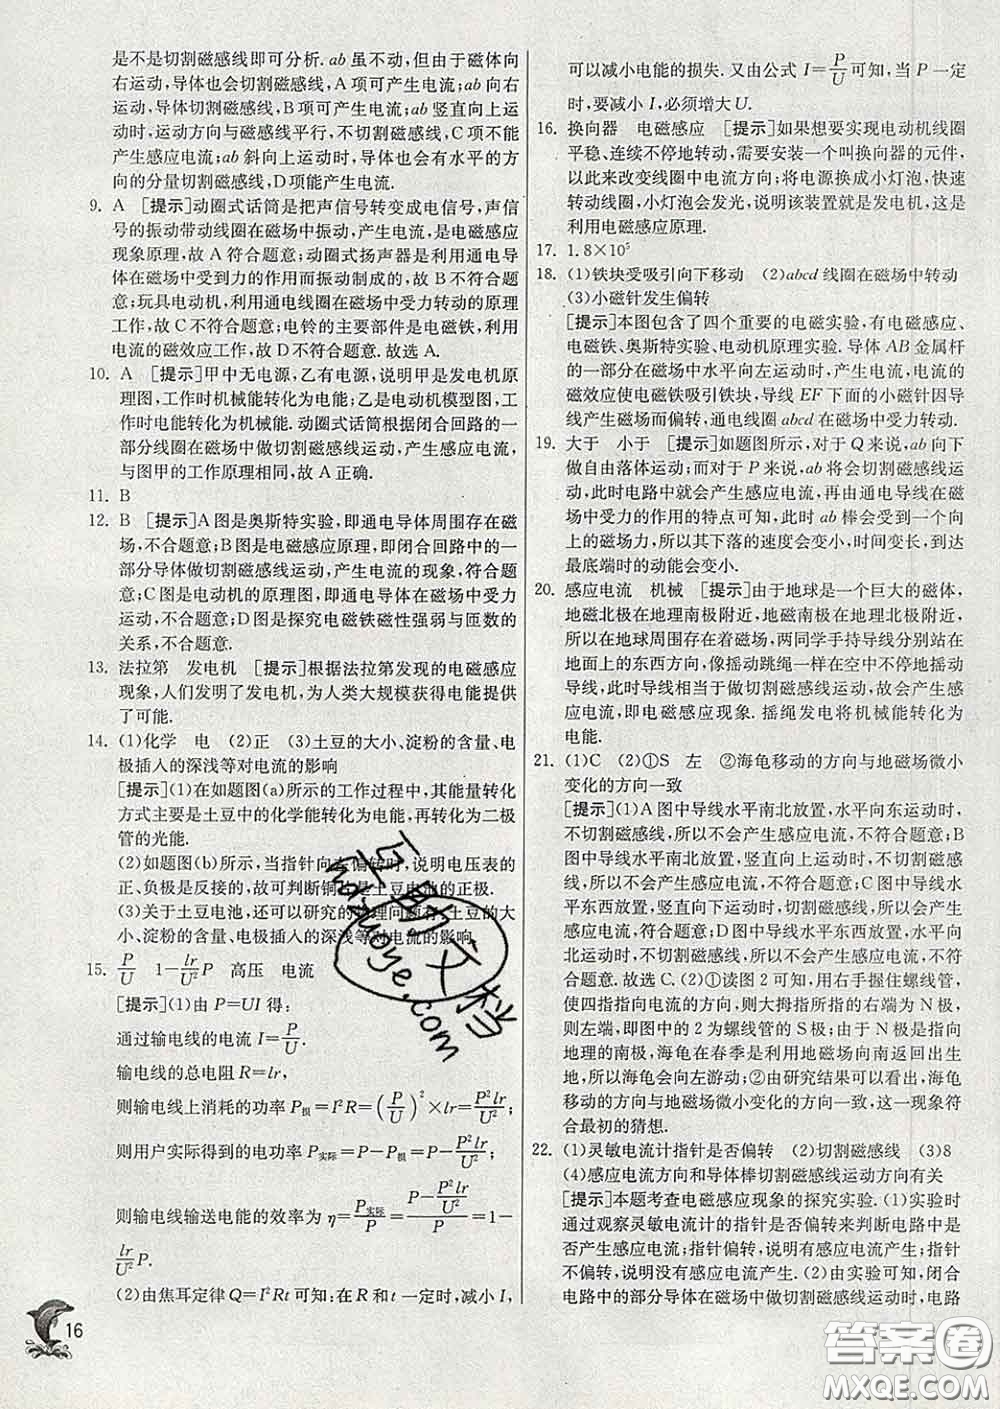 是不是切割磁感线即可分析. ab 虽不动,但由于磁体向
右运动,导体也会切割磁感线,A 项可产生电流;ab 向右
运动,导体切割磁感线,B 项可产生电流;ab 竖直向上运
动时,运动方向与磁感线平行,不切割磁感线,C 项不能
产生感应电流;ab 斜向上运动时,导体也会有水平的方
向的分量切割磁感线,D 项能产生电流.
9. A [提示]动圈式话筒是把声信号转变成电信号,声信
号的振动带动线圈在磁场中振动,产生电流,是电磁感应
现象原理,故 A 符合题意;动圈式扬声器是利用通电导
体在磁场中受到力的作用而振动制成的,故 B 不符合题
意;玩具电动机,利用通电线圈在磁场中受力转动的原理
工作,故 C 不符合题意;电铃的主要部件是电磁铁,利用
电流的磁效应工作,故 D 不符合题意.故选 A.
10. A [提示]甲中无电源,乙有电源,说明甲是发电机原
理图,工作时机械能转化为电能;乙是电动机模型图,工
作时电能转化为机械能. 动圈式话筒根据闭合回路的一
部分线圈在磁场中做切割磁感线运动,产生感应电流,
与图甲的工作原理相同,故 A 正确.
11. B
12. B [提示]A 图是奥斯特实验,即通电导体周围存在磁
场,不合题意;B 图是电磁感应原理,即闭合回路中的一
部分导体做切割磁感线运动,产生电流的现象,符合题
意;C 图是电动机的原理图,即通电导体在磁场中受力
运动,不合题意;D 图是探究电磁铁磁性强弱与匝数的
关系,不合题意.
13. 法拉第 发电机 [提示]根据法拉第发现的电磁感应
现象,人们发明了发电机,为人类大规模获得电能提供
了可能.
14. (1)化学 电 (2)正 (3)土豆的大小、淀粉的含量、电
极插入的深浅等对电流的影响
[提示](1)在如题图(a)所示的工作过程中,其能量转化
方式主要是土豆中的化学能转化为电能,再转化为二极
管的光能.
(2)如题图(b)所示,当指针向左偏转时,说明电压表的
正、负极是反接的,故可判断铜片是土豆电池的正极.
(3)关于土豆电池,还可以研究的物理问题有:土豆的大
小、淀粉的含量、电极插入的深浅等对电流的影响.
15. P/U 1-lr/U²P 高压 电流
[提示](1)由 P=UI 得:
通过输电线的电流 I=P/U.
输电线的总电阻 R=lr,
则输电线上消耗的功率 P损=I²R=(P/U)²×lr=P²lr/U²;
则用户实际得到的电功率 P实际=P-P损=P-P²lr/U²;
则输电线输送电能的效率为 η=P实际/P=(P-P²lr/U²)/P=1-
lr/U²P.
(2)由焦耳定律 Q=I²Rt 可知:在 R 和 t 一定时,减小 I,
16
可以减小电能的损失. 又由公式 I=P/U可知,当 P 一定
时,要减小 I,必须增大 U.
16. 换向器 电磁感应 [提示]如果想要实现电动机线圈
平稳、连续不停地转动,需要安装一个叫换向器的元件,
以此来改变线圈中电流方向;将电源换成小灯泡,快速
转动线圈,小灯泡会发光,说明该装置就是发电机,这是
利用电磁感应原理.
17. 1.8×10⁵
18. (1)铁块受吸引向下移动 (2)abcd 线圈在磁场中转动
(3)小磁针发生偏转
[提示]本图包含了四个重要的电磁实验,有电磁感应、
电磁铁、奥斯特实验、电动机原理实验. 导体 AB 金属杆
的一部分在磁场中水平向左运动时,产生电流,电流的
磁效应使电磁铁吸引铁块,导线 EF 下面的小磁针因导
线产生磁场而偏转,通电线圈 abcd 在磁场中受力转动.
19. 大于 小于 [提示]如题图所示,对于 Q 来说,ab 向下
做自由落体运动;而对于 P 来说,ab 将会切割磁感线运
动,此时电路中就会产生感应电流,再由通电导线在磁
场中受力的作用的特点可知,此时 ab 棒会受到一个向
上的磁场力,所以其下落的速度会变小,时间变长,到达
最底端时的动能会变小.
20. 感应电流 机械 [提示]由于地球是一个巨大的磁体,
地磁北极在地理南极附近,地磁南极在地理北极附近,
所以在地球周围存在着磁场,两同学手持导线分别站在
地面上的东西方向,像摇动跳绳一样在空中不停地摇动
导线,此时导线相当于做切割磁感线运动,故会产生感
应电流,即电磁感应现象. 摇绳发电将机械能转化为
电能.
21. (1)C (2)①S 左 ②海龟移动的方向与地磁场微小
变化的方向一致
[提示](1)A 图中导线水平南北放置,水平向东运动时,
不切割磁感线,所以不会产生感应电流,不符合题意;B
图中导线水平南北放置,竖直向上运动时,不切割磁感
线,所以不会产生感应电流,不符合题意;C 图中导线水
平东西放置,竖直向下运动时,切割磁感线,所以会产生
感应电流,符合题意;D 图中导线水平东西放置,水平向
北运动时,不切割磁感线,所以不会产生感应电流,不符
合题意.故选 C. (2)①读图 2 可知,用右手握住螺线管,
使四指指向电流的方向,则大拇指所指的右端为 N 极,
则左端,即图中的 2 为螺线管的 S 极;由于 N 极是指向
地理的南极,海龟在春季是利用地磁场向南返回出生
地,所以海龟会向左游动;②由研究结果可以看出,海龟
移动的方向与地磁场微小变化的方向一致,这一现象符
合最初的猜想.
22. (1)灵敏电流计指针是否偏转 (2)切割磁感线 (3)8
(4)感应电流方向和导体棒切割磁感线运动方向有关
[提示]本题考查电磁感应现象的探究实验. (1)实验时
通过观察灵敏电流计的指针是否偏转来判断电路中是
否产生感应电流;指针偏转,说明有感应电流产生;不偏
转,说明没有感应电流产生. (2)由实验可知,闭合
电路中的部分导体在磁场中做切割磁感线运动时,电路
互助文档
hdzuoye.com
答案圈
MXQE.COM